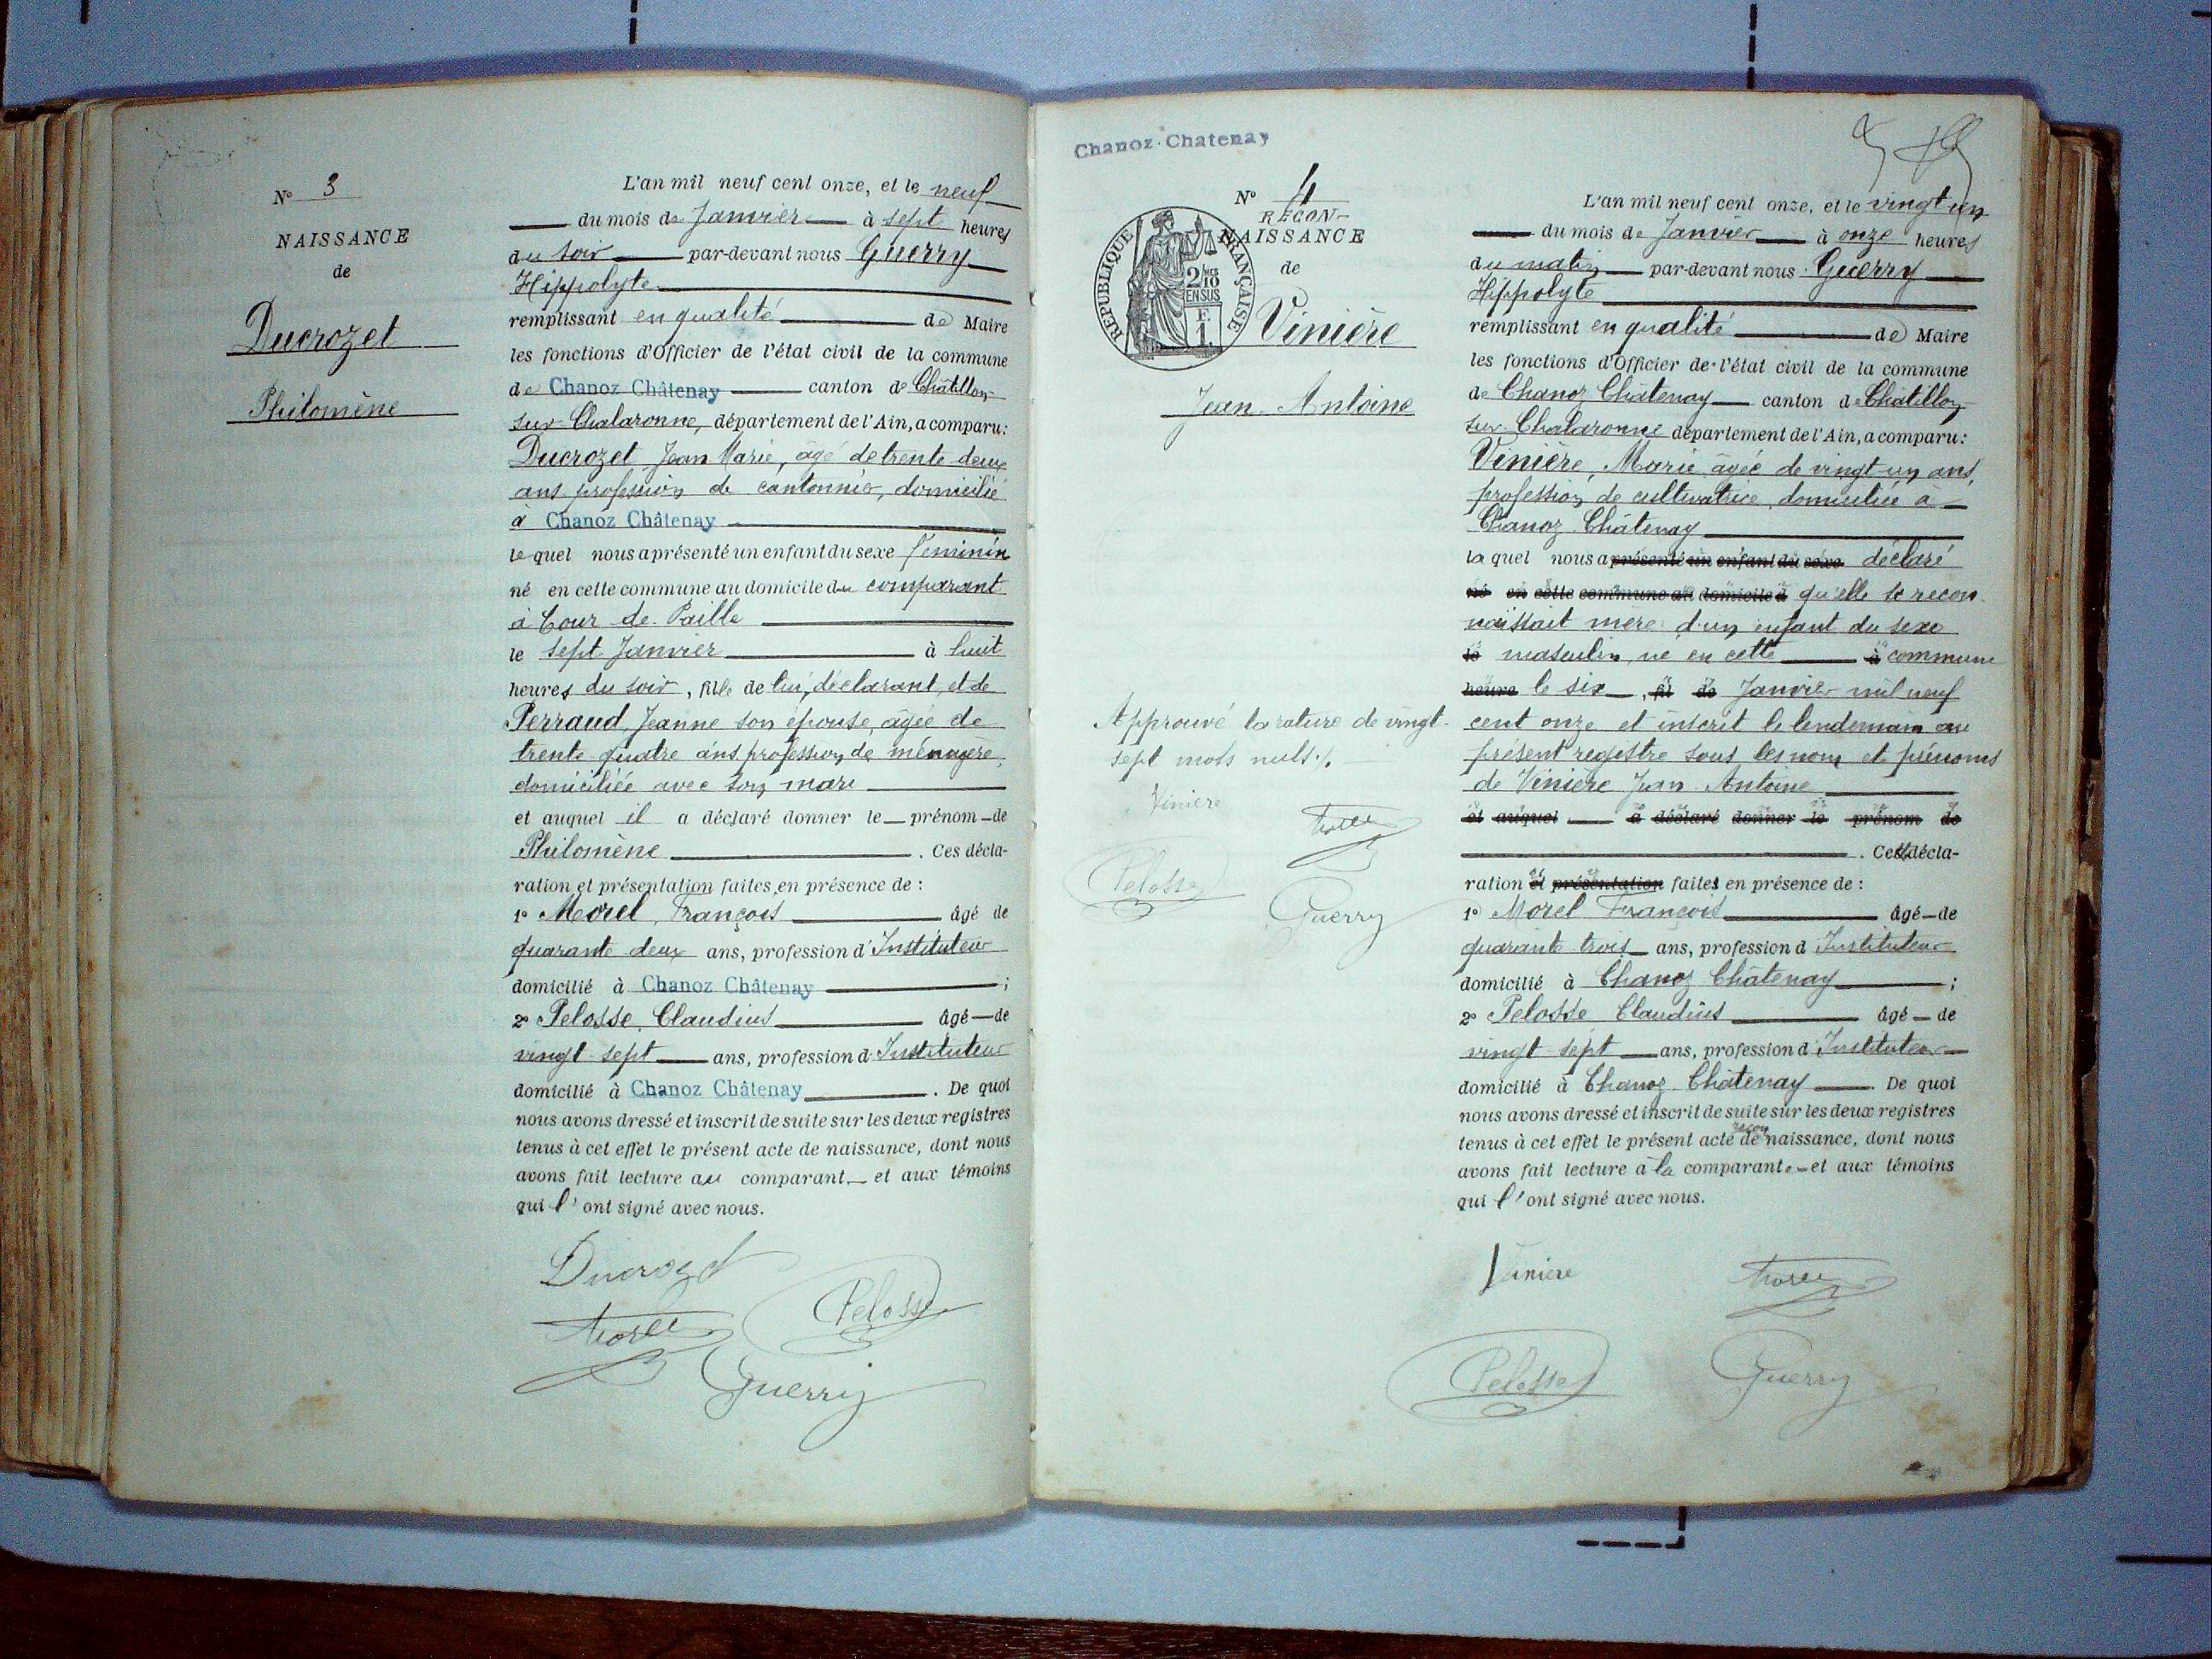 N° 3
NAISSANCE
de
Ducrozet
Philomène
L'an mil neuf cent onze, et le neuf
du mois de Janvier à sept heures
du soir par-devant nous Guerry
Hippolyte
remplissant en qualité de Maire
les fonctions d'Officier de l'état civil de la commune
de Chanoz Châtenay canton de Châtillon
sur Chalaronne, département de l'Ain, a comparu:
Ducrozet Jean Marie, âgé de trente deux
ans profession de cantonnier, domicilié
à Chanoz Châtenay
lequel nous a présenté un enfant du sexe féminin
né en cette commune au domicile du comparant
à Cour de Paille
le sept Janvier à huit
heures du soir, fille de lui, déclarant, et de
Perraud Jeanne son épouse, âgée de
trente quatre ans profession de ménagère,
domiciliée avec son mari
et auquel il a déclaré donner le prénom de
Philomène. Ces décla-
ration et présentation faites en présence de :
1° Morel François âgé de
quarante deux ans, profession d'Instituteur
domicilié à Chanoz Châtenay ;
2° Pelosse Claudius âgé de
vingt-sept ans, profession d'Instituteur
domicilié à Chanoz Châtenay. De quoi
nous avons dressé et inscrit de suite sur les deux registres
tenus à cet effet le présent acte de naissance, dont nous
avons fait lecture au comparant et aux témoins
qui l'ont signé avec nous.
Ducrozet
Morel Pelosse
Guerry
Chanoz-Chatenay
N° 4
RECON-
NAISSANCE
de
RÉPUBLIQUE FRANÇAISE
2/10
EN SUS
F.
1.
Vinière
Jean Antoine
Approuvé la rature de vingt-
sept mots nuls./.
Vinière
Morel
Pelosse
Guerry
L'an mil neuf cent onze, et le vingt-un
du mois de Janvier à onze heures
du matin par-devant nous Guerry
Hippolyte
remplissant en qualité de Maire
les fonctions d'Officier de l'état civil de la commune
de Chanoz Châtenay canton de Châtillon
sur Chalaronne département de l'Ain, a comparu:
Vinière, Marie âgée de vingt-un ans,
profession de cultivatrice, domiciliée à
Chanoz Châtenay
laquel nous a présenté un enfant du sexe déclaré
né en cette commune au domicile d qu'elle se recon-
naissait mère d'un enfant du sexe
le masculin, né en cette à commune
heure le six, fil de Janvier mil neuf
cent onze et inscrit le lendemain au
présent registre sous les nom et prénoms
de Vinière Jean Antoine
et auquel a déclaré donner le prénom de
. Cette décla-
ration et présentation faites en présence de :
1° Morel François âgé de
quarante trois ans, profession d'Instituteur
domicilié à Chanoz Châtenay ;
2° Pelosse Claudius âgé de
vingt-sept ans, profession d'Instituteur
domicilié à Chanoz Châtenay. De quoi
nous avons dressé et inscrit de suite sur les deux registres
tenus à cet effet le présent acte de reconnaissance, dont nous
avons fait lecture à la comparante et aux témoins
qui l'ont signé avec nous.
Vinière Morel
Pelosse Guerry